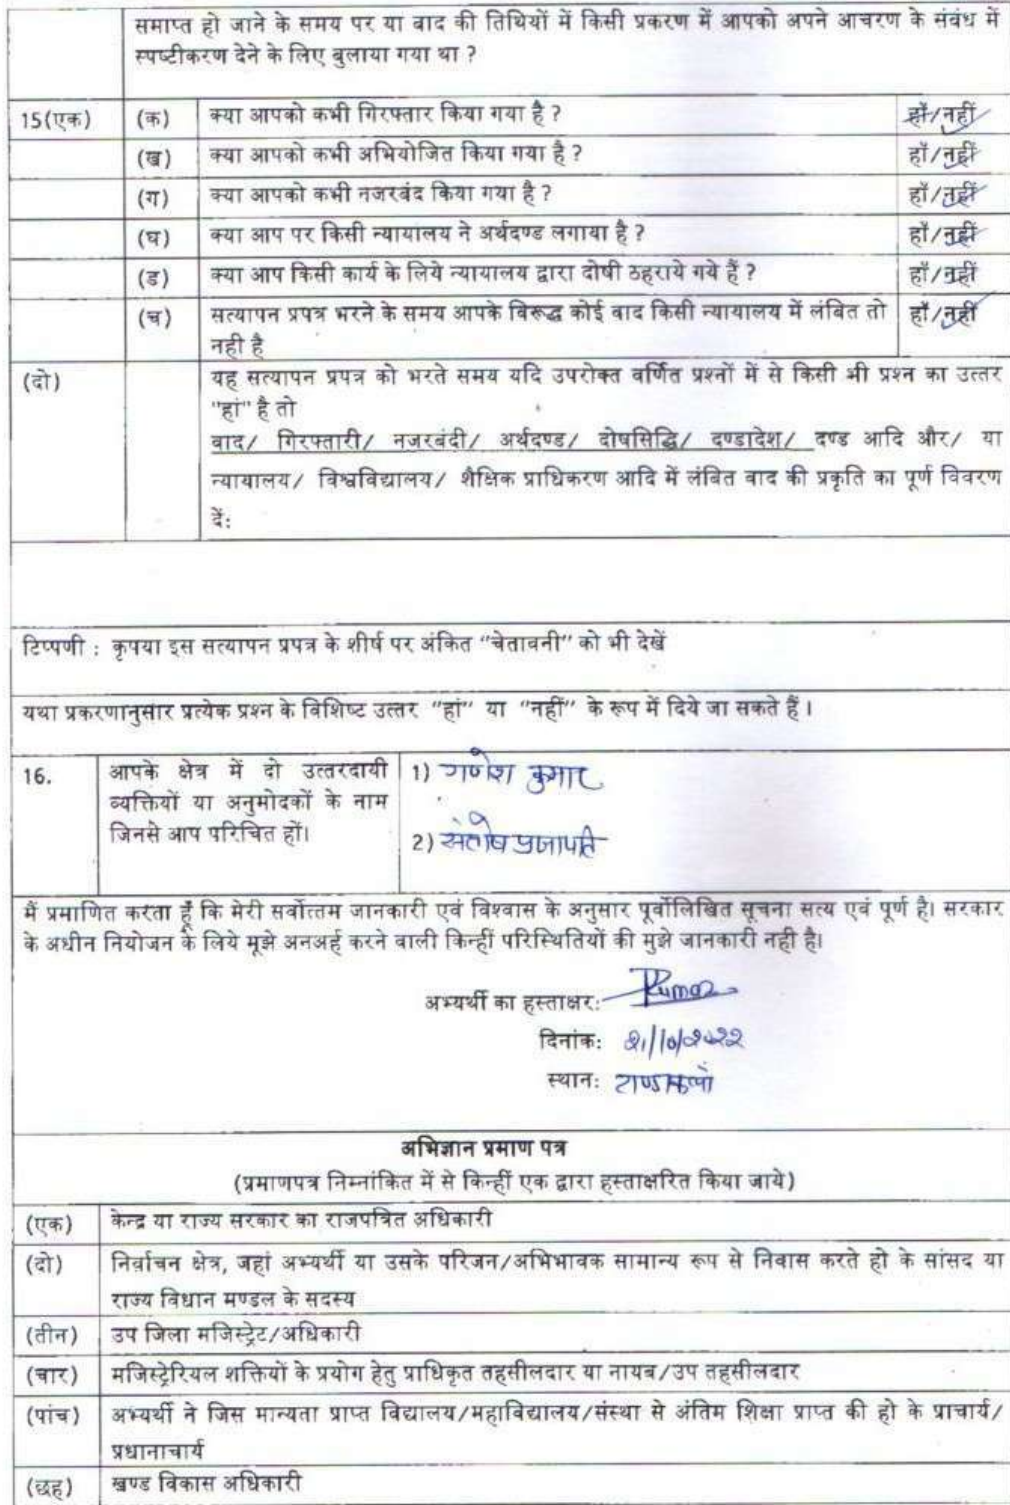 समाप्त हो जाने के समय पर या बाद की तिथियों में किसी प्रकरण में आपको अपने आचरण के संबंध में
स्पष्टीकरण देने के लिए बुलाया गया था ?
15(एक) (क) क्या आपको कभी गिरफ्तार किया गया है ? हाँ/नहीं
(ख) क्या आपको कभी अभियोजित किया गया है ? हाँ/नहीं
(ग) क्या आपको कभी नजरबंद किया गया है ? हाँ/नहीं
(घ) क्या आप पर किसी न्यायालय ने अर्थदण्ड लगाया है ? हाँ/नहीं
(ड) क्या आप किसी कार्य के लिये न्यायालय द्वारा दोषी ठहराये गये हैं ? हाँ/नहीं
(च) सत्यापन प्रपत्र भरने के समय आपके विरूद्ध कोई वाद किसी न्यायालय में लंबित तो हाँ/नहीं
नही है
(दो) यह सत्यापन प्रपत्र को भरते समय यदि उपरोक्त वर्णित प्रश्नों में से किसी भी प्रश्न का उत्तर
"हां" है तो
वाद/ गिरफ्तारी/ नजरबंदी/ अर्थदण्ड/ दोषसिद्धि/ दण्डादेश/ दण्ड आदि और/ या
न्यायालय/ विश्वविद्यालय/ शैक्षिक प्राधिकरण आदि में लंबित वाद की प्रकृति का पूर्ण विवरण
दें:
टिप्पणी : कृपया इस सत्यापन प्रपत्र के शीर्ष पर अंकित "चेतावनी" को भी देखें
यथा प्रकरणानुसार प्रत्येक प्रश्न के विशिष्ट उत्तर "हां" या "नहीं" के रूप में दिये जा सकते हैं ।
16. आपके क्षेत्र में दो उत्तरदायी 1) गणेश कुमार
व्यक्तियों या अनुमोदकों के नाम
जिनसे आप परिचित हों। 2) संतोष प्रजापति
मैं प्रमाणित करता हूँ कि मेरी सर्वोत्तम जानकारी एवं विश्वास के अनुसार पूर्वोलिखित सूचना सत्य एवं पूर्ण है। सरकार
के अधीन नियोजन के लिये मूझे अनअर्ह करने वाली किन्हीं परिस्थितियों की मुझे जानकारी नही है।
अभ्यर्थी का हस्ताक्षर: Kumar
दिनांक: 21/10/2022
स्थान:
अभिज्ञान प्रमाण पत्र
(प्रमाणपत्र निम्नांकित में से किन्हीं एक द्वारा हस्ताक्षरित किया जाये)
(एक) केन्द्र या राज्य सरकार का राजपत्रित अधिकारी
(दो) निर्वाचन क्षेत्र, जहां अभ्यर्थी या उसके परिजन/अभिभावक सामान्य रूप से निवास करते हो के सांसद या
राज्य विधान मण्डल के सदस्य
(तीन) उप जिला मजिस्ट्रेट/अधिकारी
(चार) मजिस्ट्रेरियल शक्तियों के प्रयोग हेतु प्राधिकृत तहसीलदार या नायब/उप तहसीलदार
(पांच) अभ्यर्थी ने जिस मान्यता प्राप्त विद्यालय/महाविद्यालय/संस्था से अंतिम शिक्षा प्राप्त की हो के प्राचार्य/
प्रधानाचार्य
(छह) खण्ड विकास अधिकारी